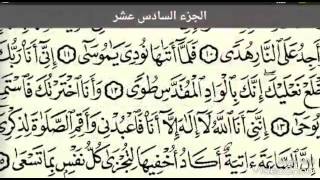 الجزء السادس عشر
أَجِدُ عَلَى ٱلنَّارِ هُدًى ١٠ فَلَمَّآ أَتَىٰهَا نُودِىَ يَـٰمُوسَىٰٓ ١١ إِنِّىٓ أَنَا۠
خْلَعْ نَعْلَيْكَ إِنَّكَ بِٱلْوَادِ ٱلْمُقَدَّسِ طُوًى ١٢ وَأَنَا ٱخْتَرْتُكَ فَٱسْتَمِ
يُوحَىٰٓ ١٣ إِنَّنِىٓ أَنَا ٱللَّهُ لَآ إِلَـٰهَ إِلَّآ أَنَا۠ فَٱعْبُدْنِى وَأَقِمِ ٱلصَّلَوٰةَ لِذِكْرِى
إِنَّ ٱلسَّاعَةَ ءَاتِيَةٌ أَكَادُ أُخْفِيهَا لِتُجْزَىٰ كُلُّ نَفْسٍۭ بِمَا تَسْعَىٰ